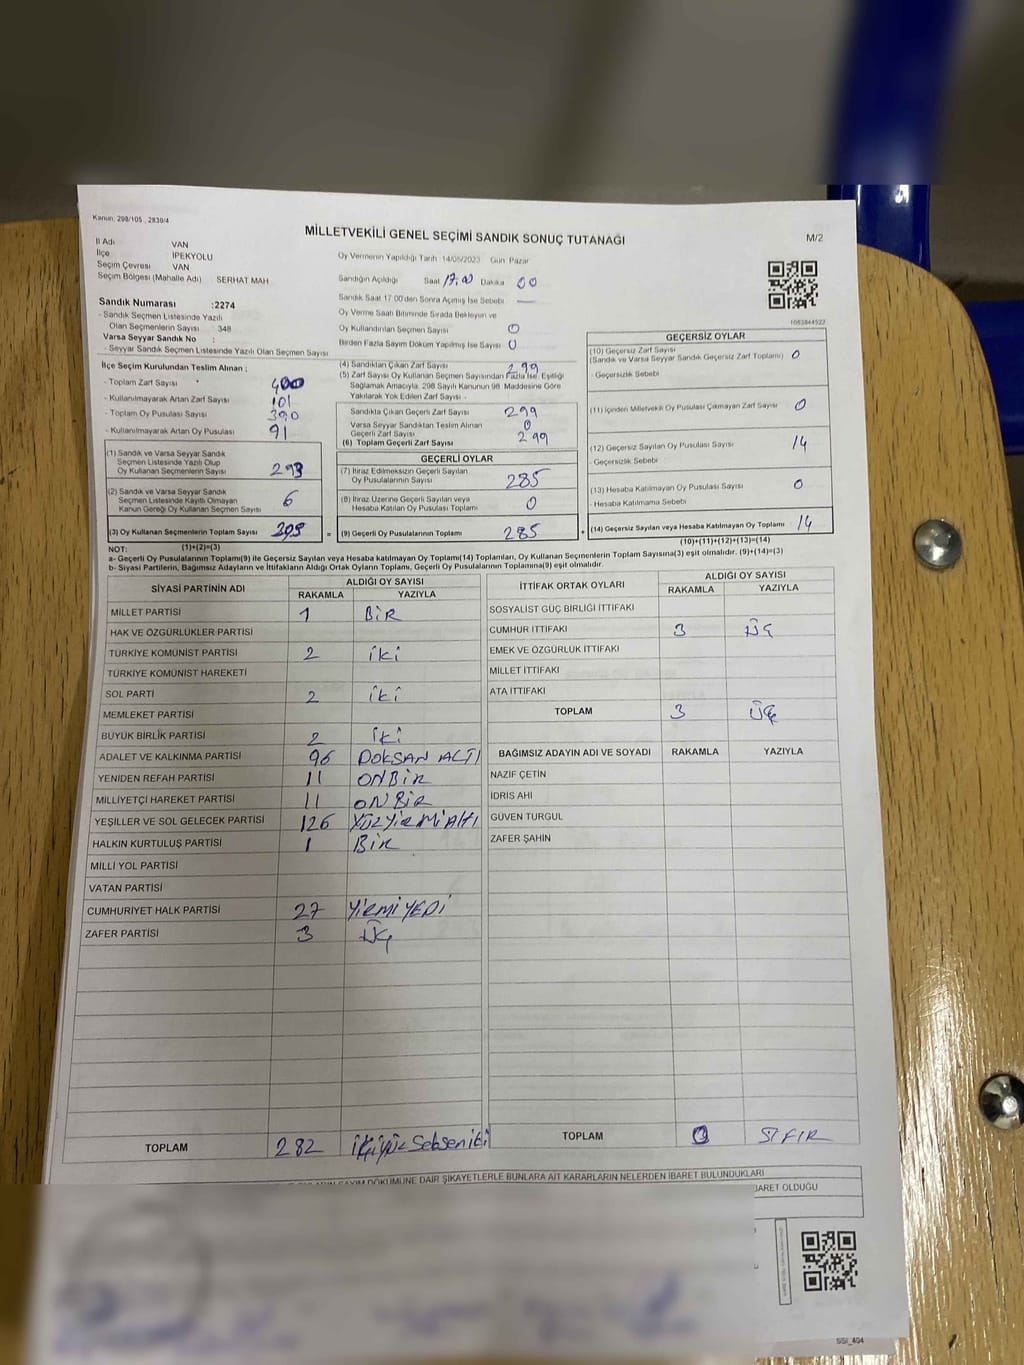 Kanun: 298/105 , 2839/4
MİLLETVEKİLİ GENEL SEÇİMİ SANDIK SONUÇ TUTANAĞI
M/2
İl Adı VAN
İlçe İPEKYOLU
Seçim Çevresi VAN
Seçim Bölgesi (Mahalle Adı) SERHAT MAH
Sandık Numarası :2274
- Sandık Seçmen Listesinde Yazılı
Olan Seçmenlerin Sayısı : 348
Varsa Seyyar Sandık No :
- Seyyar Sandık Seçmen Listesinde Yazılı Olan Seçmen Sayısı
İlçe Seçim Kurulundan Teslim Alınan ;
- Toplam Zarf Sayısı 400
- Kullanılmayarak Artan Zarf Sayısı 101
- Toplam Oy Pusulası Sayısı 390
- Kullanılmayarak Artan Oy Pusulası 91
(1) Sandık ve Varsa Seyyar Sandık
Seçmen Listesinde Yazılı Olup
Oy Kullanan Seçmenlerin Sayısı 293
(2) Sandık ve Varsa Seyyar Sandık
Seçmen Listesinde Kayıtlı Olmayan
Kanun Gereği Oy Kullanan Seçmen Sayısı 6
(3) Oy Kullanan Seçmenlerin Toplam Sayısı 299
(1)+(2)=(3)
Oy Vermenin Yapıldığı Tarih 14/05/2023 Gün Pazar
Sandığın Açıldığı Saat 17:00 Dakika 00
Sandık Saat 17:00'den Sonra Açmış İse Sebebi —
Oy Verme Saati Bitiminde Sırada Bekleyen ve
Oy Kullandırılan Seçmen Sayısı 0
Birden Fazla Sayım Döküm Yapılmış İse Sayısı 0
(4) Sandıktan Çıkan Zarf Sayısı 299
(5) Zarf Sayısı Oy Kullanan Seçmen Sayısından Fazla İse, Eşitliği
Sağlamak Amacıyla, 298 Sayılı Kanunun 98. Maddesine Göre
Yakılarak Yok Edilen Zarf Sayısı -
Sandıkta Çıkan Geçerli Zarf Sayısı 299
Varsa Seyyar Sandıktan Teslim Alınan
Geçerli Zarf Sayısı 0
(6) Toplam Geçerli Zarf Sayısı 299
GEÇERLİ OYLAR
(7) İtiraz Edilmeksizin Geçerli Sayılan
Oy Pusulalarının Sayısı 285
(8) İtiraz Üzerine Geçerli Sayılan veya
Hesaba Katılan Oy Pusulaları Toplamı 0
= (9) Geçerli Oy Pusulalarının Toplamı 285 +
1063844522
GEÇERSİZ OYLAR
(10) Geçersiz Zarf Sayısı
(Sandık ve Varsa Seyyar Sandık Geçersiz Zarf Toplamı) 0
- Geçersizlik Sebebi
(11) İçinden Milletvekili Oy Pusulası Çıkmayan Zarf Sayısı 0
(12) Geçersiz Sayılan Oy Pusulası Sayısı 14
- Geçersizlik Sebebi
(13) Hesaba Katılmayan Oy Pusulası Sayısı 0
- Hesaba Katılmama Sebebi
(14) Geçersiz Sayılan veya Hesaba Katılmayan Oy Toplamı 14
(10)+(11)+(12)+(13)=(14)
NOT:
a- Geçerli Oy Pusulalarının Toplamı(9) ile Geçersiz Sayılan veya Hesaba katılmayan Oy Toplamı(14) Toplamları, Oy Kullanan Seçmenlerin Toplam Sayısına(3) eşit olmalıdır. (9)+(14)=(3)
b- Siyasi Partilerin, Bağımsız Adayların ve İttifakların Aldığı Ortak Oyların Toplamı, Geçerli Oy Pusulalarının Toplamına(9) eşit olmalıdır.
SİYASİ PARTİNİN ADI ALDIĞI OY SAYISI
RAKAMLA YAZIYLA
MİLLET PARTİSİ 1 BİR
HAK VE ÖZGÜRLÜKLER PARTİSİ
TÜRKİYE KOMÜNİST PARTİSİ 2 iki
TÜRKİYE KOMÜNİST HAREKETİ
SOL PARTİ 2 iki
MEMLEKET PARTİSİ
BÜYÜK BİRLİK PARTİSİ 2 iki
ADALET VE KALKINMA PARTİSİ 96 DOKSAN ALTI
YENİDEN REFAH PARTİSİ 11 ONBİR
MİLLİYETÇİ HAREKET PARTİSİ 11 ONBİR
YEŞİLLER VE SOL GELECEK PARTİSİ 126 YÜZ YİRMİ ALTI
HALKIN KURTULUŞ PARTİSİ 1 BİR
MİLLİ YOL PARTİSİ
VATAN PARTİSİ
CUMHURİYET HALK PARTİSİ 27 YİRMİ YEDİ
ZAFER PARTİSİ 3 ÜÇ
TOPLAM 282 ikiyüz Seksen iki
İTTİFAK ORTAK OYLARI ALDIĞI OY SAYISI
RAKAMLA YAZIYLA
SOSYALİST GÜÇ BİRLİĞİ İTTİFAKI
CUMHUR İTTİFAKI 3 ÜÇ
EMEK VE ÖZGÜRLÜK İTTİFAKI
MİLLET İTTİFAKI
ATA İTTİFAKI
TOPLAM 3 ÜÇ
BAĞIMSIZ ADAYIN ADI VE SOYADI RAKAMLA YAZIYLA
NAZİF ÇETİN
İDRİS AHİ
GÜVEN TURGUL
ZAFER ŞAHİN
TOPLAM 0 SIFIR
SAYIM DÖKÜMÜNE DAİR ŞİKAYETLERLE BUNLARA AİT KARARLARIN NELERDEN İBARET BULUNDUKLARI
İBARET OLDUĞU
SSİ_404